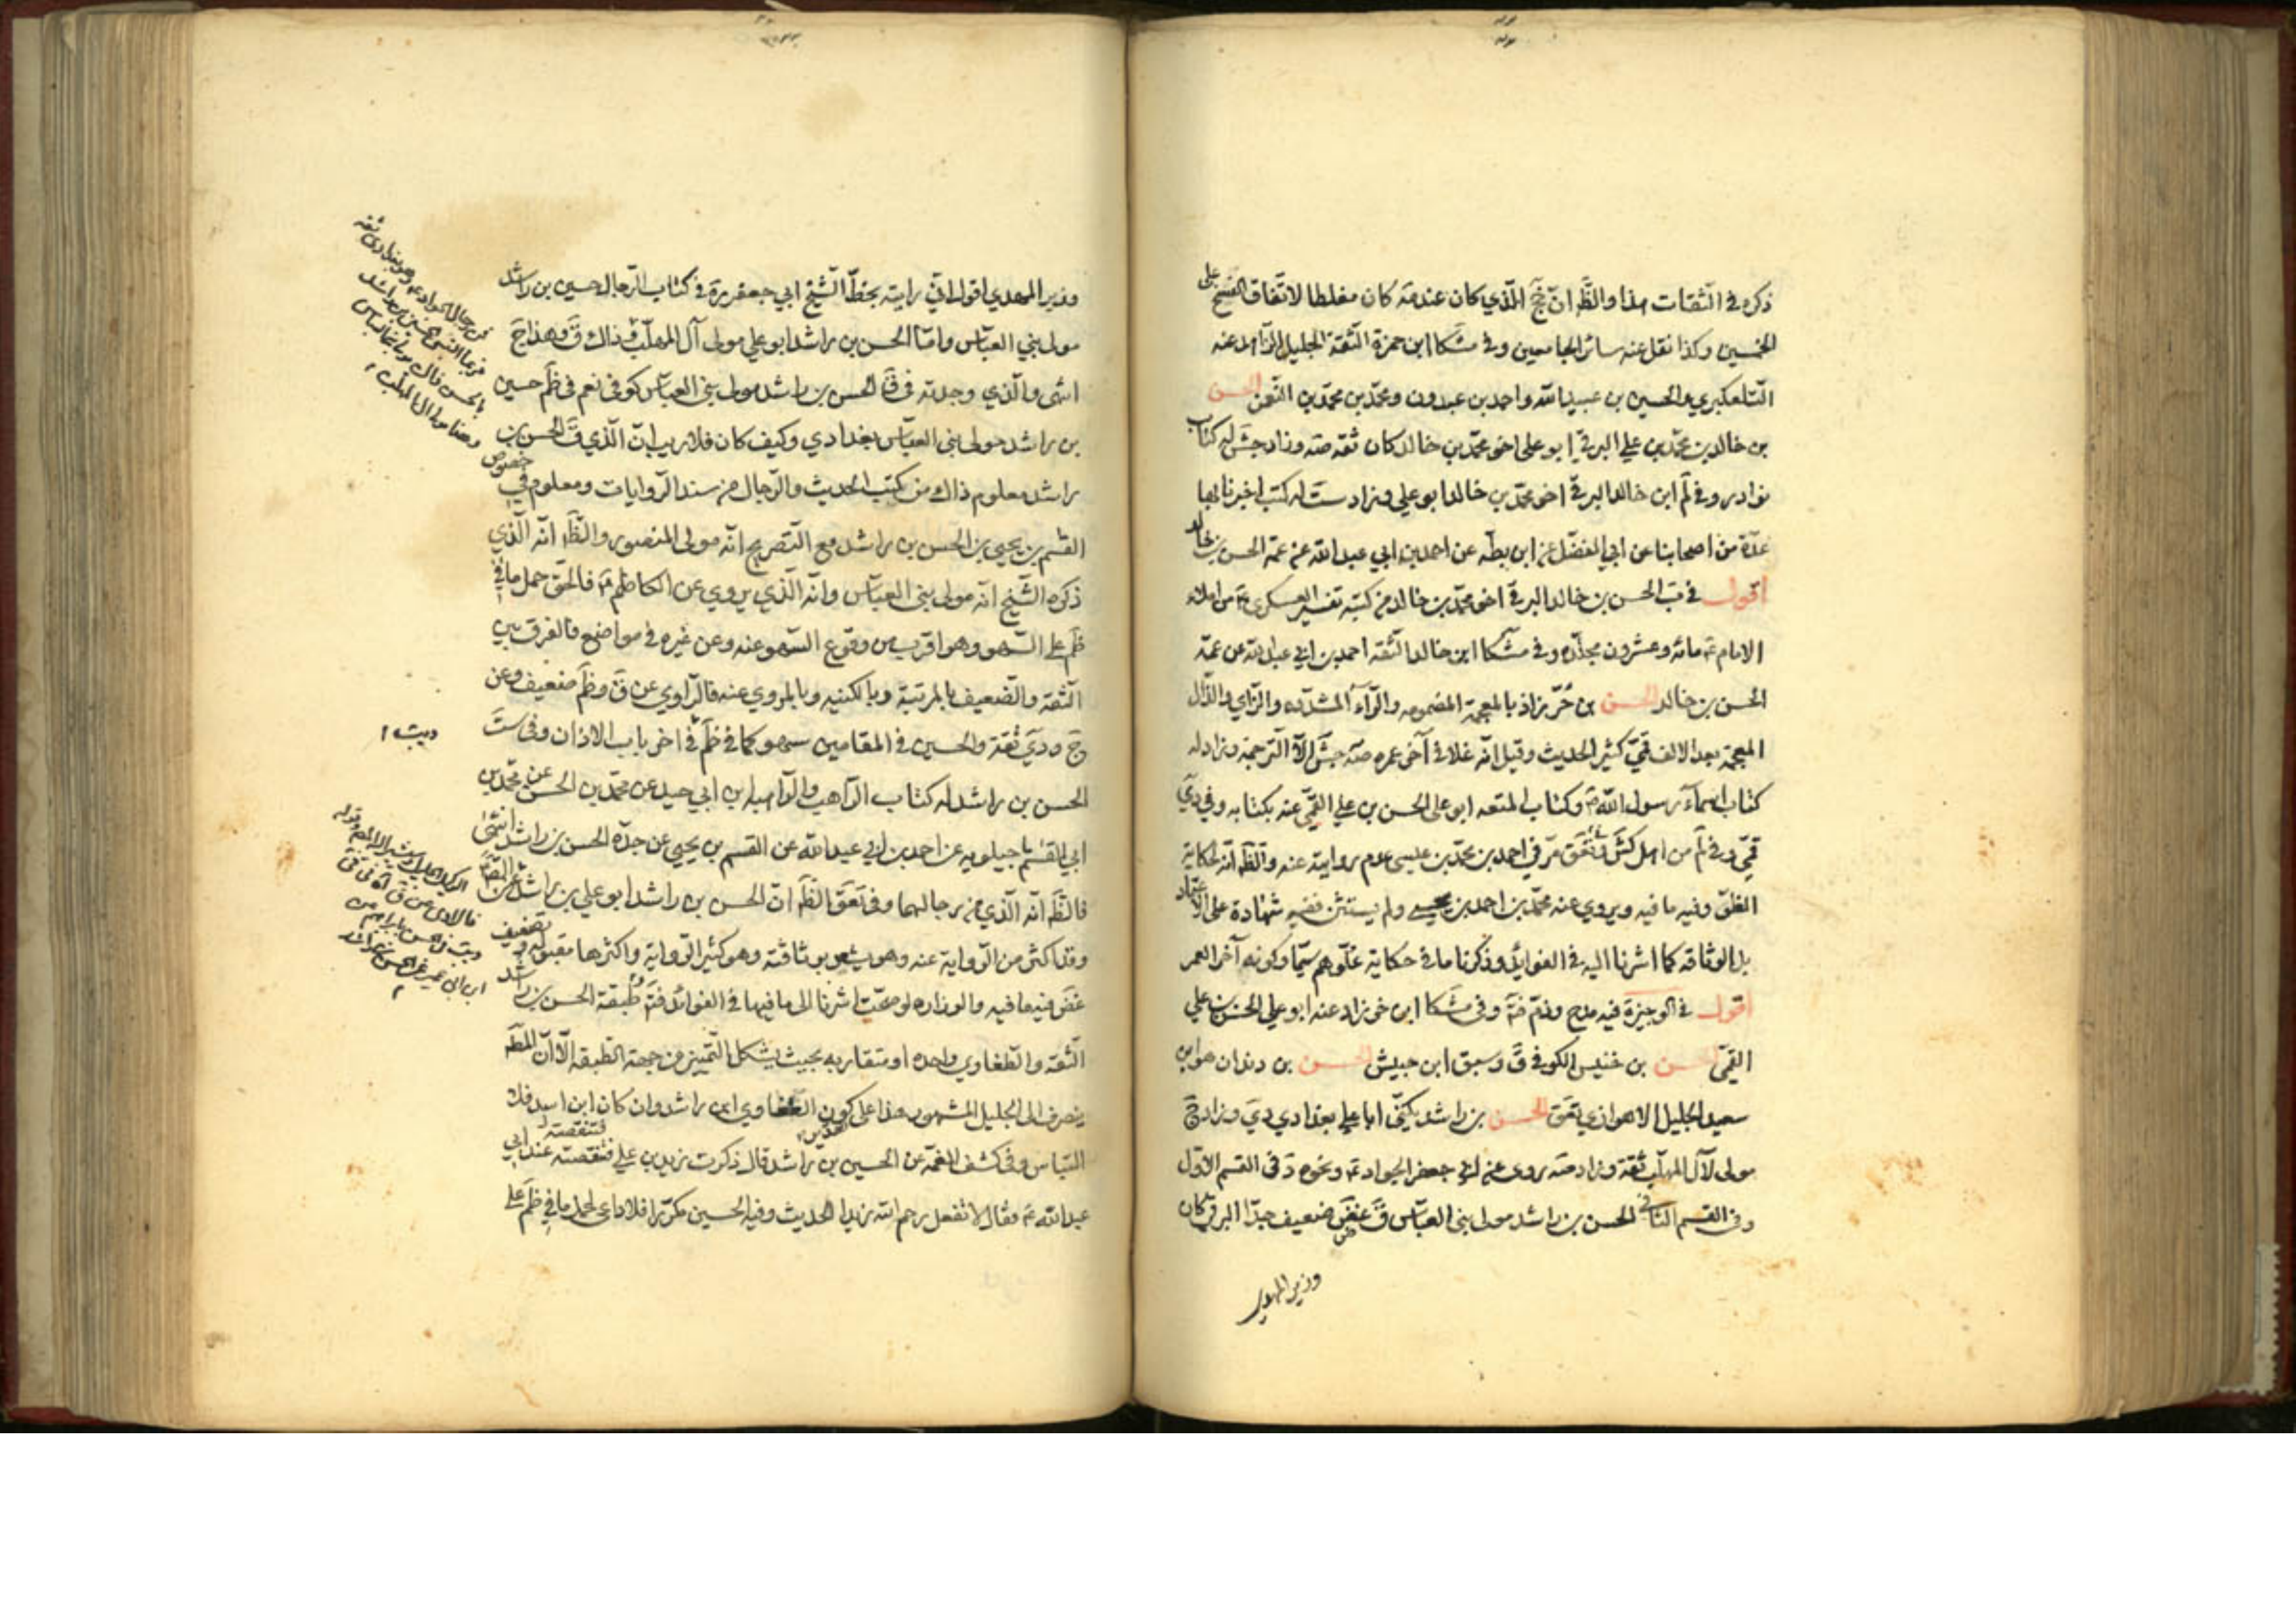 ذكره في الثقات هذا والظ ان جخ الذي كان عنده كان مغلطا لاتفاق النسخ على
الخمسين وكذا نقل عنه سائر الجامعين وفي مشكا ابن حمزة الثقة الجليل عنه
التلعكبري والحسين بن عبيد الله واحمد بن عبدون ومحمد بن محمد بن النعمن الحسن
بن خالد بن محمد بن علي البرقي ابو علي اخو محمد بن خالد كان ثقة صه وزاد جش له كتاب
نوادر وفي لم ابن خالد البرقي اخو محمد بن خالد ابو علي وزاد ست له كتب اخبرنا بها
عدة من اصحابنا عن ابي المفضل عن ابن بطه عن احمد بن ابي عبد الله عن عمه الحسن بن خالد
اقول في ب الحسن بن خالد البرقي اخو محمد بن خالد من كتبه تفسير العسكري ع من املاء
الامام ع مائه وعشرون مجلده وفي مشكا ابن خالد الثقه احمد بن ابي عبد الله عن عمه
الحسن بن خالد الحسن بن خرزاذ بالمعجمة المضمومه والراء المشدده والزاي والذال
المعجمة بعد الالف قمي كثير الحديث وقيل انه غلا في آخر عمره صه جش الا الترجمة وزاد له
كتاب اسماء رسول الله ص وكتاب المتعه ابو علي الحسن بن علي القمي عنه بكتابه وفي دي
قمي وفي لم من اهل كش وفي تعق مر في احمد بن محمد بن عيسى عدم روايته عنه والظ انه لحكاية
الغلو وفيه ما فيه ويروي عنه محمد بن احمد بن يحيى ولم يستثن ففيه شهادة على الاعتماد
بل الوثاقه كما اشرنا اليه في الفوائد وذكرنا ما في حكاية غلوهم سيما وكونه آخر العمر
اقول في الوجيزة فيه مدح وذم وفي مشكا ابن خرزاد عنه ابو علي الحسن بن علي
القمي الحسن بن خنيس الكوفي ق وسبق ابن حبيش الحسن بن دندان هو ابن
سعيد الجليل الاهوازي تعق الحسن بن راشد يكنى ابا علي بغدادي دي وزاد ج
مولى لآل المهلب ثقة وزاد صه روى عن ابي جعفر الجواد ع ونحوه د في القسم الاول
وفي القسم الثاني الحسن بن راشد مولى بني العباس ق غض ضعيف جدا البرقي كان
وزير المهدي
وزير المهدي اقول اني رايته بخط الشيخ ابي جعفر ره في كتاب الرجال حسين بن راشد
مولى بني العباس واما الحسن بن راشد ابو علي مولى آل المهلب فذاك ق وهذا ج
انتهى والذي وجدته في ق الحسن بن راشد مولى بني العباس كوفي نعم في ظم حسين
بن راشد مولى بني العباس بغدادي وكيف كان فلا ريب ان الذي ق الحسن بن
راشد معلوم ذلك من كتب الحديث والرجال من سند الروايات ومعلوم في خصوص
القسم بن يحيى بن الحسن بن راشد مع التصريح انه مولى المنصور والظ انه الذي
ذكره الشيخ انه مولى بني العباس وانه الذي يروي عن الكاظم ع فالحق حمل ما في
ظم على السهو وهو اقرب من وقوع السهو عنه وعن غيره في مواضع فالفرق بين
الثقة والضعيف بالمرتبة وبالكنيه وبالمروي عنه فالراوي عن ق وظم ضعيف وعن
ج ودي ثقة والحسين في المقامين سهو كما في ظم في اخر باب الاذان وفي ست
الحسن بن راشد له كتاب الراهب والراهبه ابن ابي جيد عن محمد بن الحسن عن محمد بن
ابي القسم ماجيلويه عن احمد بن ابي عبد الله عن القسم بن يحيى عن جده الحسن بن راشد انتهى
فالظ انه الذي من رجالهما وفي تعق الظ ان الحسن بن راشد ابو علي بن راشد
وقد اكثر من الرواية عنه وهو يشعر بوثاقته وهو كثير الرواية واكثرها مقبوله وتضعيف
غض فيه ما فيه والوزاره لو صحت اشرنا الى ما فيها في الفوائد طبقة الحسن بن راشد
الثقه والطفاوي واحده او متقاربه بحيث يشكل التميز من جهة الطبقه الا ان المط
ينصرف الى الجليل المشهور هذا على كون الطفاوي ابن راشد وان كان ابن اسد فلا
التباس وفي كشف الغمة عن الحسين بن راشد قال ذكرت زيد بن علي فتنقصته عند ابي
عبد الله ع فقال لا تفعل رحم الله زيدا الحديث وفيه الحسين مكررا فلا داعي لحمل ما في ظم على